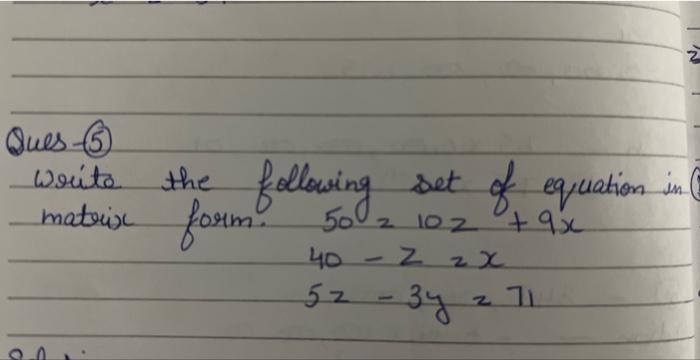 Ques-⑤
Write the following set of equation in
matrix form. 50 = 10z + 9x
40 - z = x
5z - 3y = 71